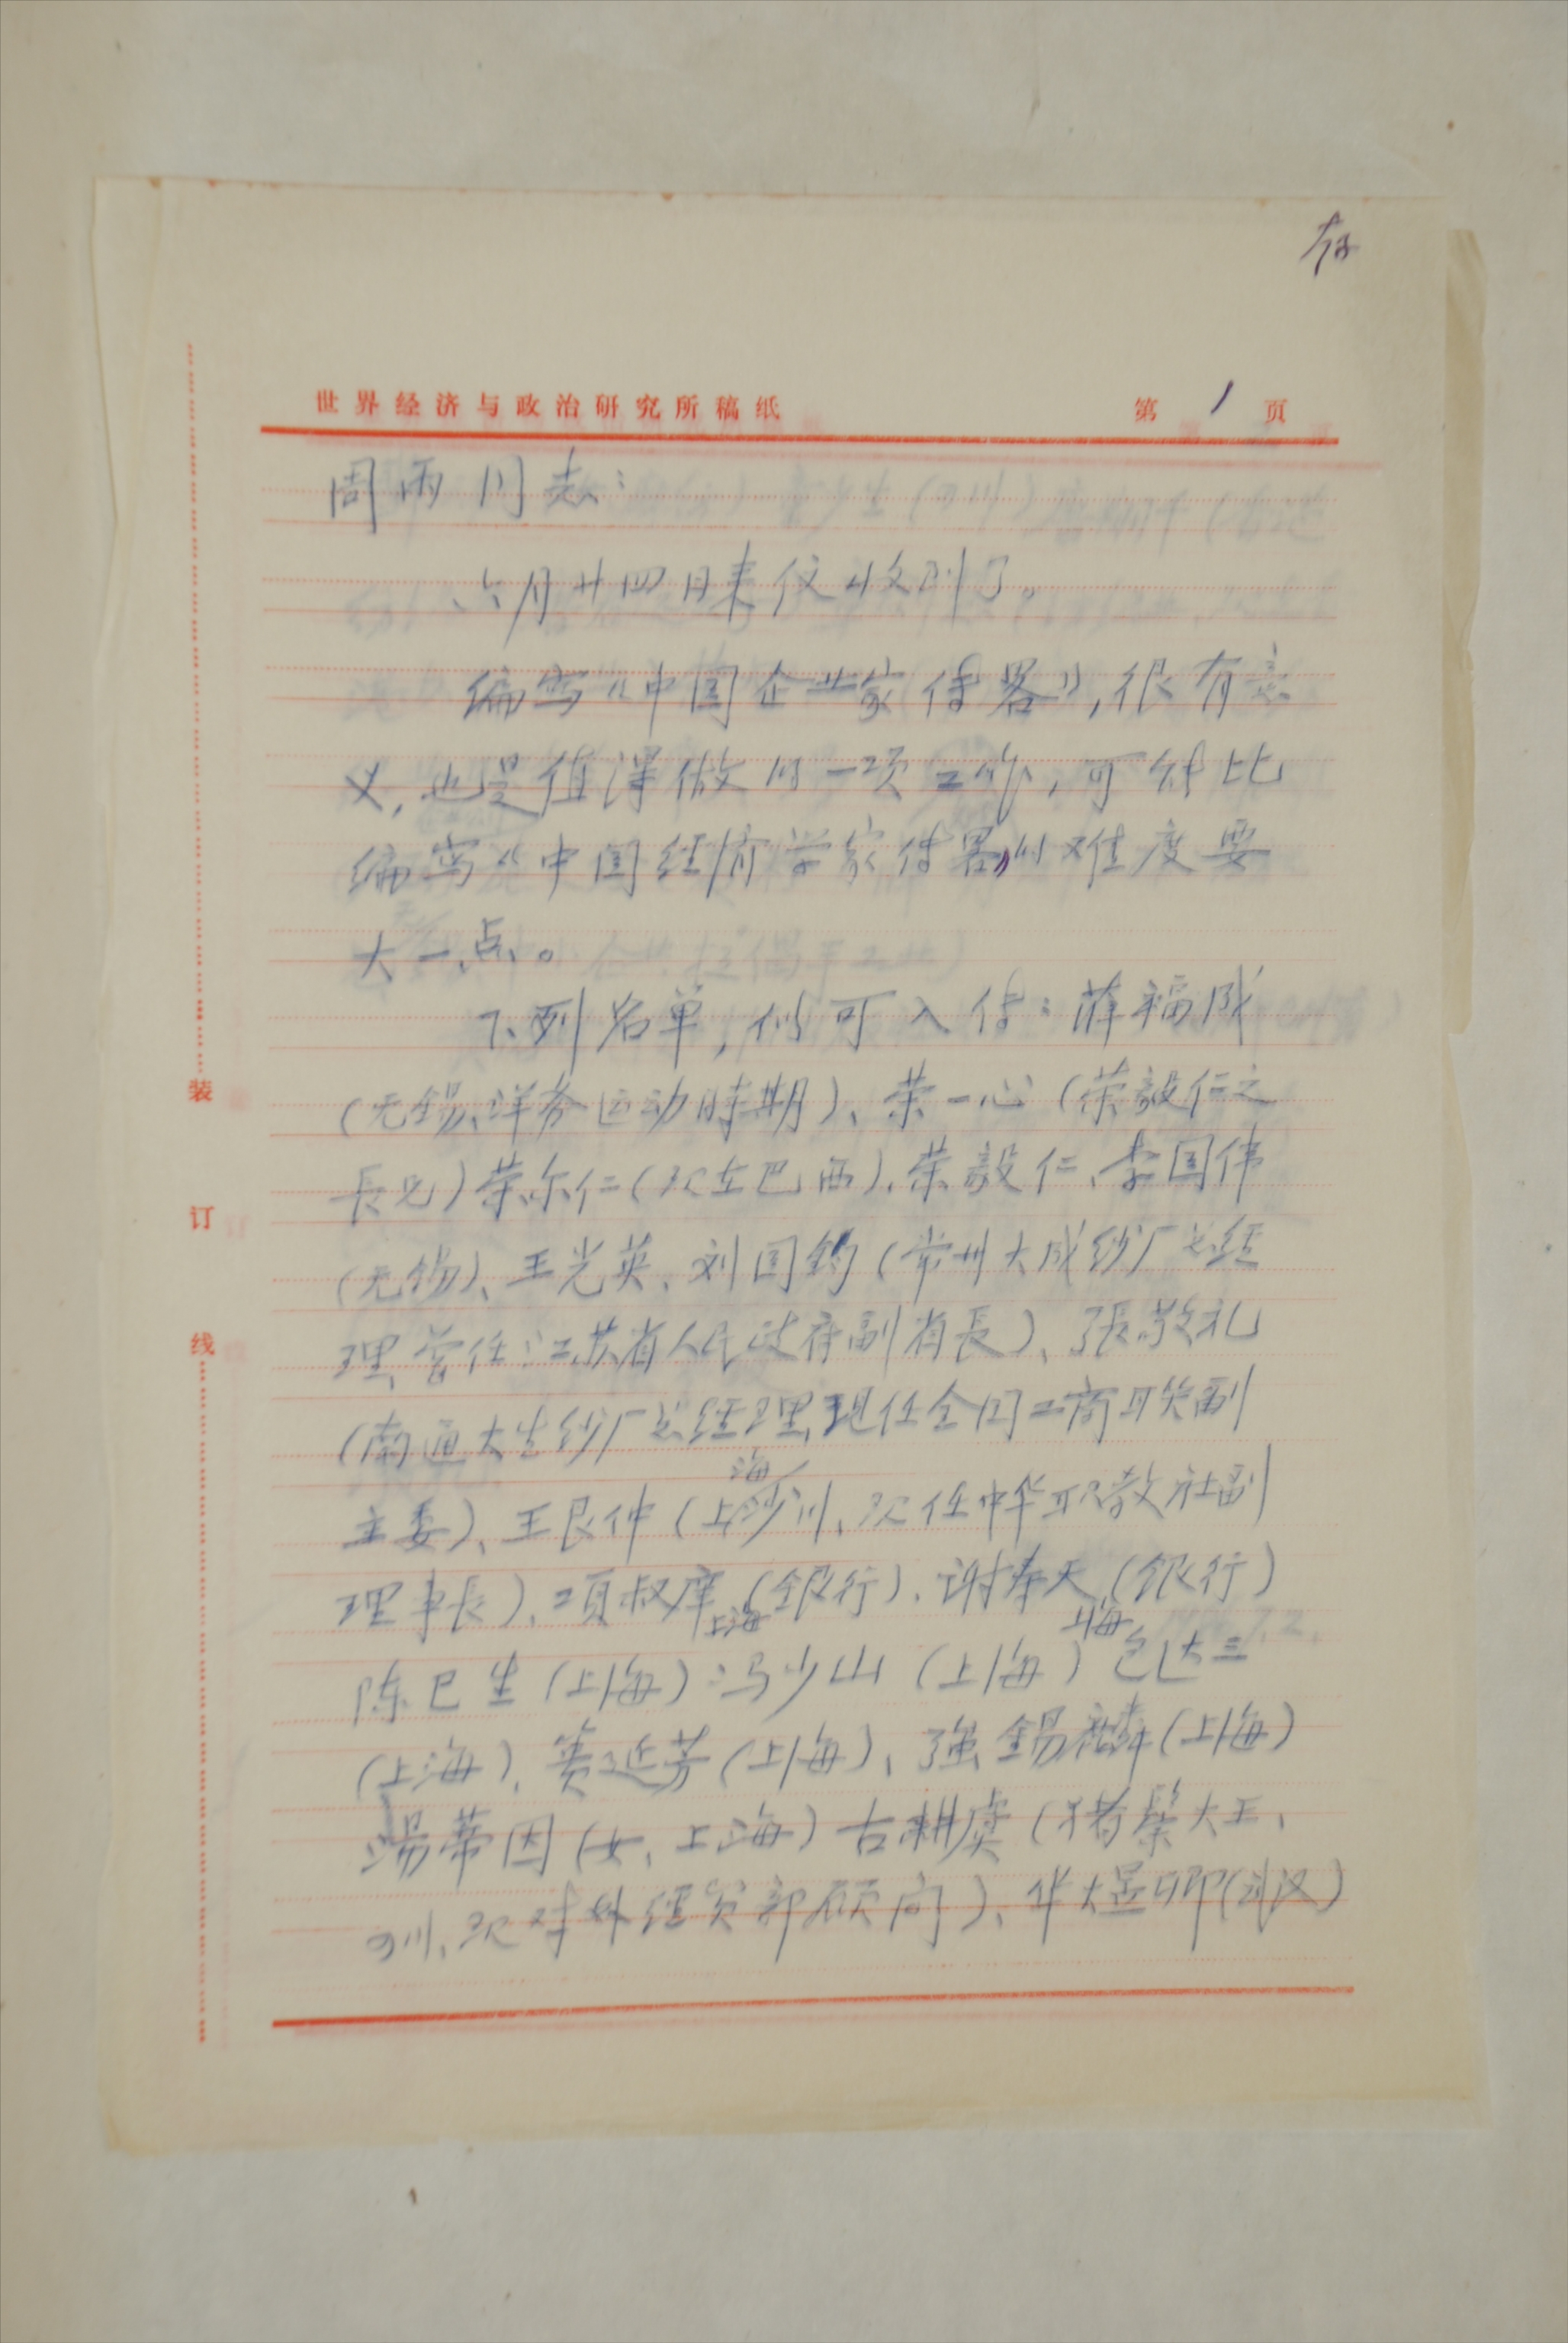 存
世界经济与政治研究所稿纸 第 1 页
周雨同志：
六月廿四日来信收到了。
编写《中国企业家传略》，很有意
义，也是值得做的一项工作，可能比
编写《中国经济学家传略》的难度要
大一点。
下列名单，似可入传：薛福成
（无锡、洋务运动時期）、荣一心（荣毅仁之
長兄）荣尔仁（现在巴西）、荣毅仁、李国伟
（无锡）、王光英、刘国钧（常州大成纱厂总经
理、曾任江苏省人民政府副省長）、張敬礼
（南通大生纱厂总经理，现任全国工商联副
主委）、王艮仲（上海川沙、现任中华职教社副
理事长）、項叔庠（上海银行）、谢寿天（上海银行）
陈巳生（上海）冯少山（上海）包达三
（上海）、黄延芳（上海）、强锡麟（上海）
湯蒂因（女、上海）古耕虞（猪鬃大王、
四川、现对外经贸部顾问）、华煜卿（武汉）
装
订
线